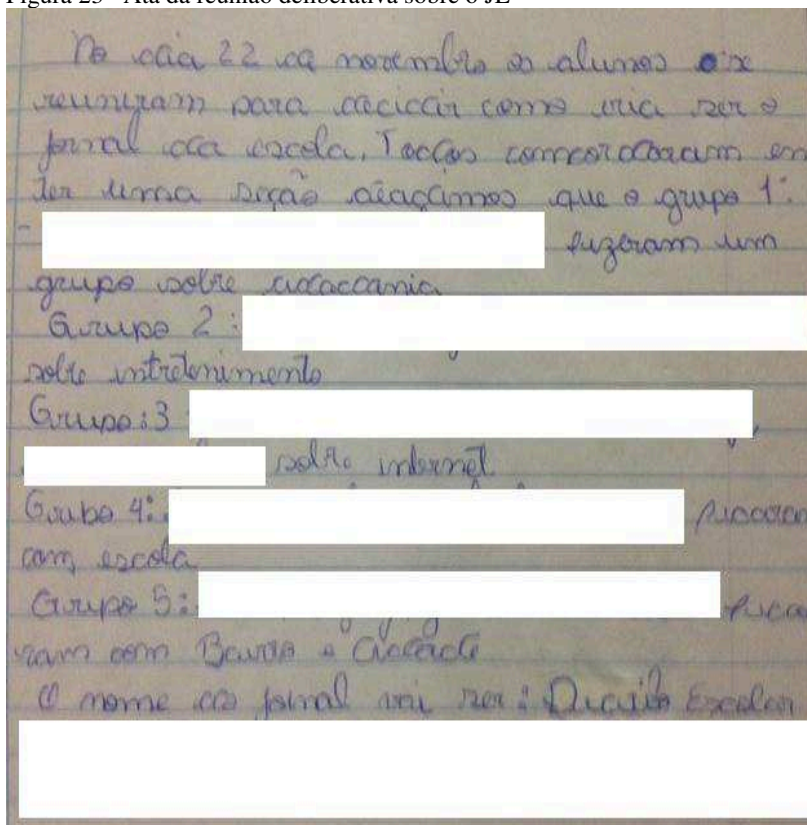 Figura 23 - Ata da reunião deliberativa sobre o JE
No dia 22 de novembro os alunos se
reuniram para decidir como iria ser o
jornal da escola, Todos comcordaram em
ter uma seção digamos que o grupo 1:
fizeram um
grupo sobre cidadania
Grupo 2:
sobre intretenimento
Grupo:3
sobre internet
Grubo 4: ficaram
com escola
Grupo 5: fica
ram com Bairro e Cidade
O nome do jornal vai ser: Escolar